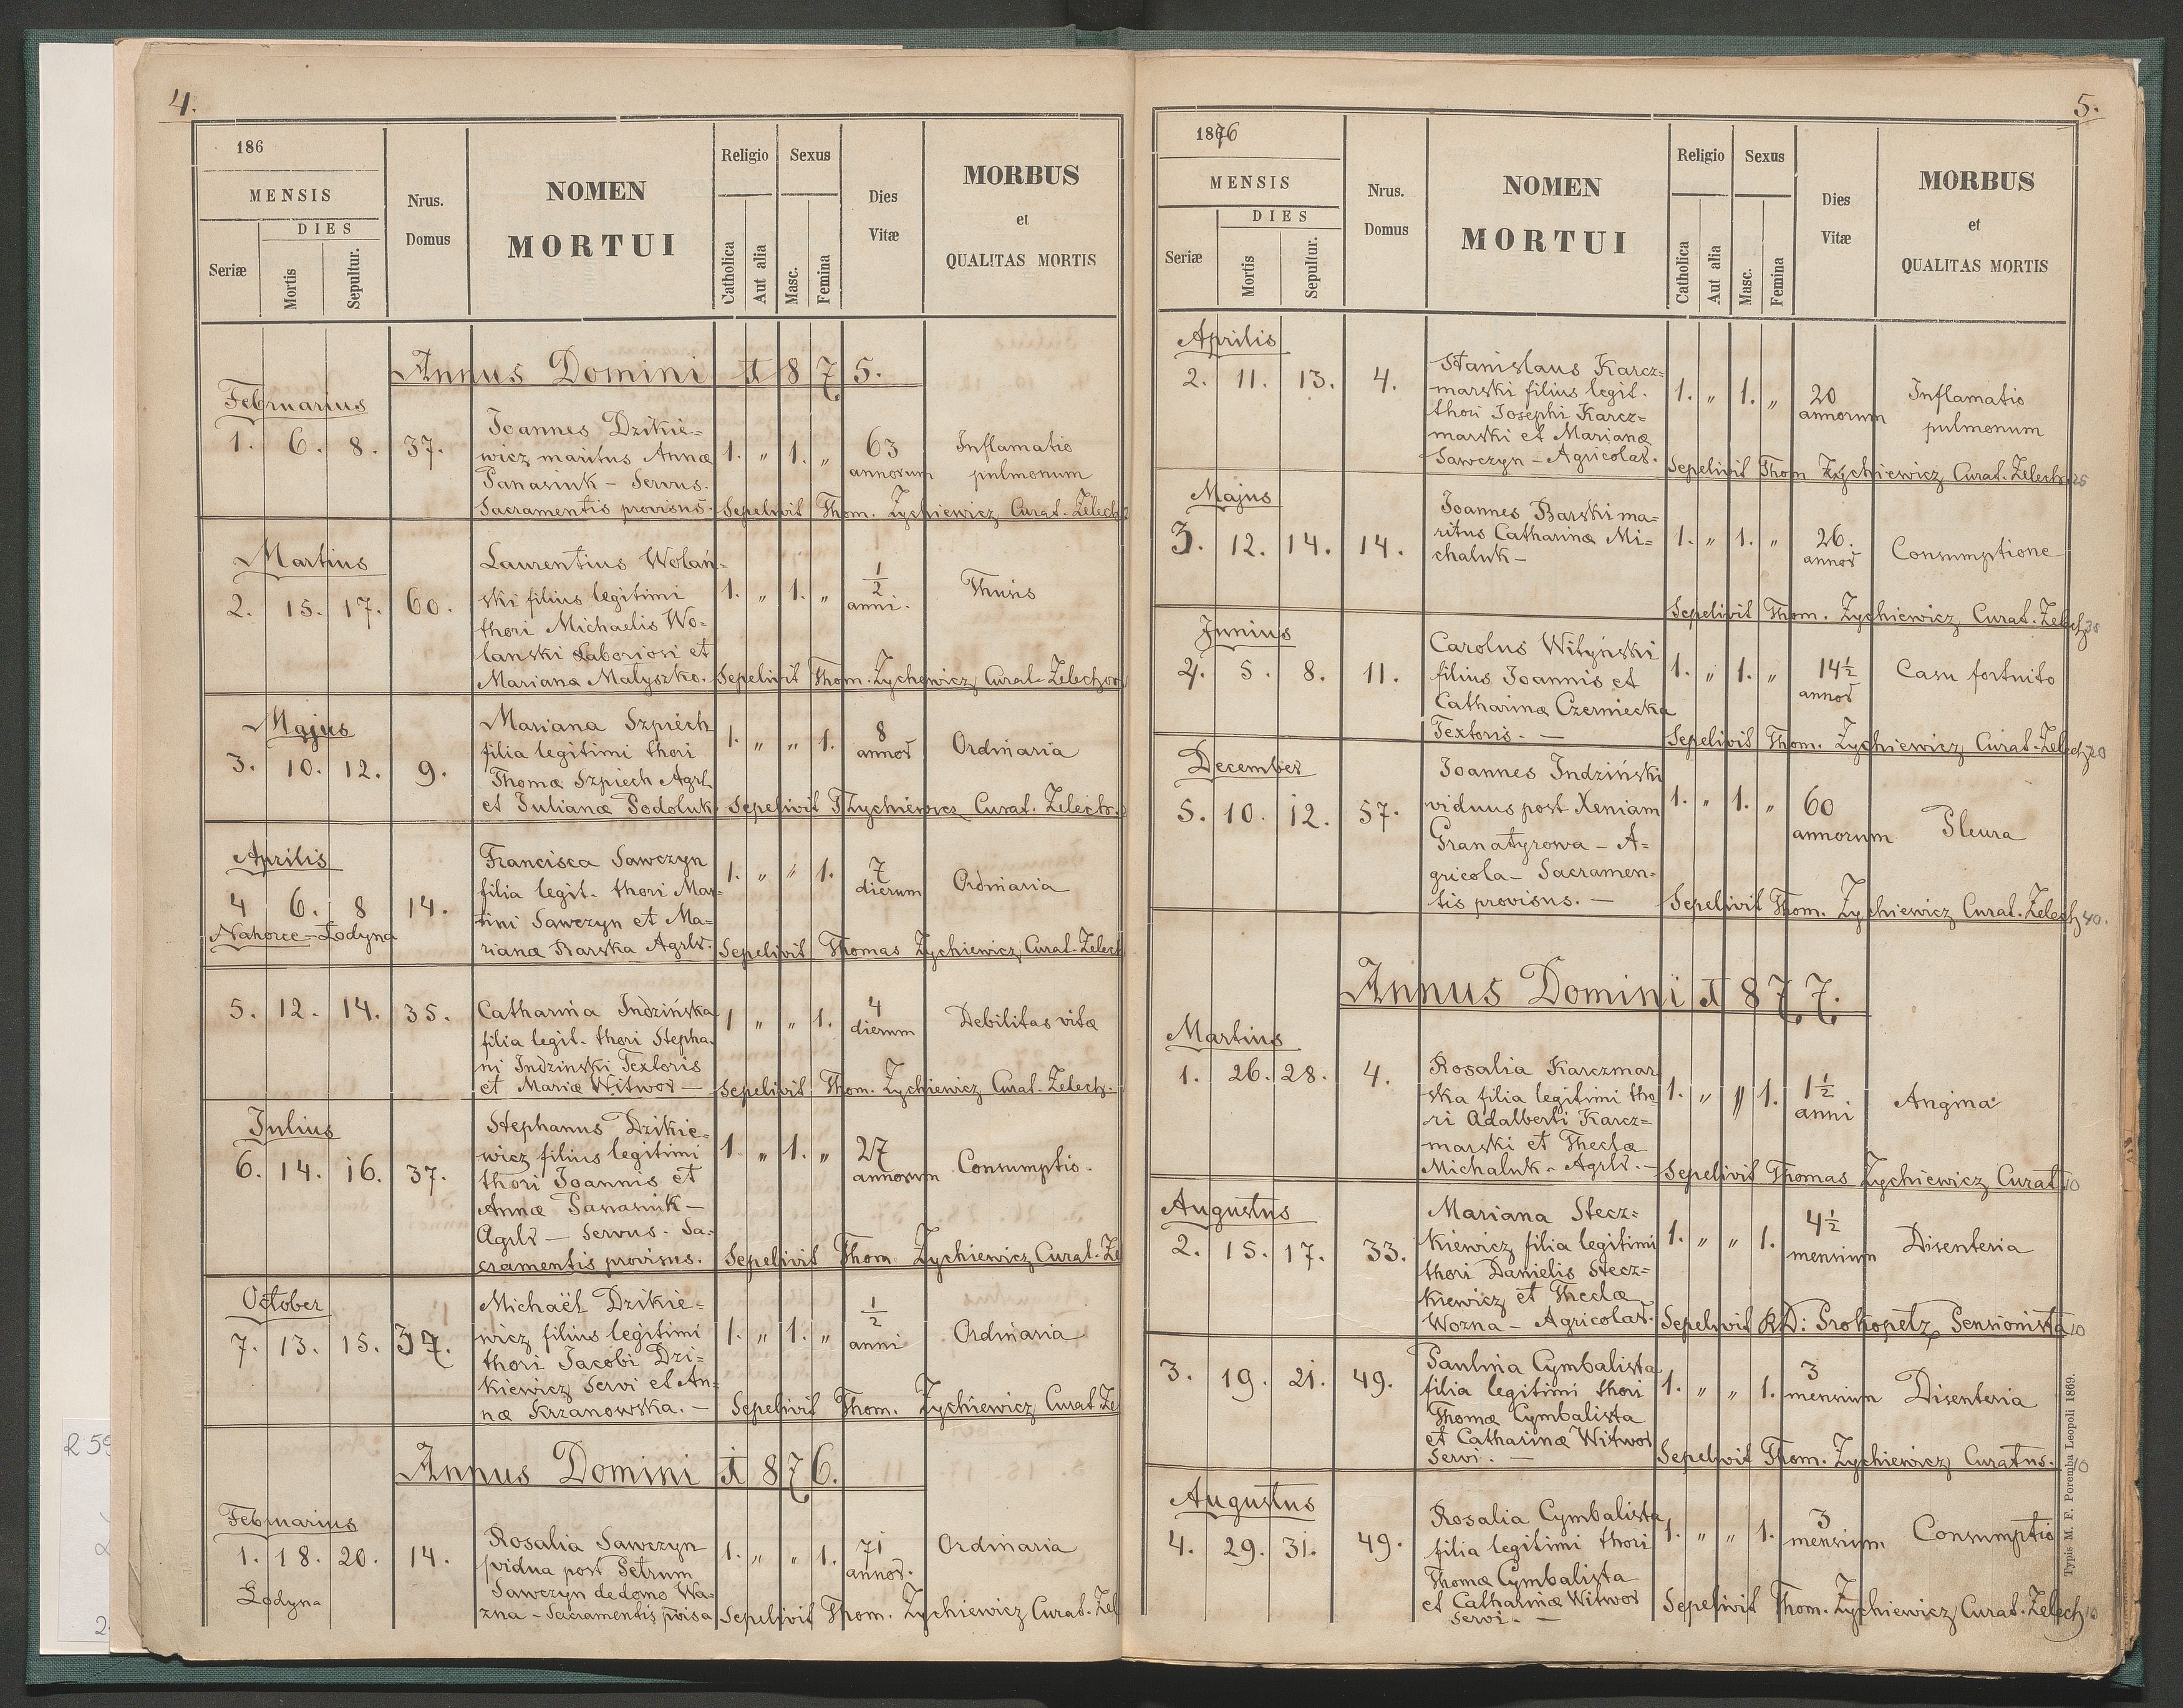 4.
186
MENSIS
DIES
Seriæ
Mortis
Sepultur.
Nrus.
Domus
NOMEN
MORTUI
Religio
Sexus
Catholica
Aut alia
Masc.
Femina
Dies
Vitæ
MORBUS
et
QUALITAS MORTIS
Annus Domini 1875.
Februarius
1. 6. 8. 37.
Joannes Dzikie=
wicz maritus Annæ
Panasiuk - Servus.
Sacramentis provisus.
1. " 1. "
63
annorum
Inflamatio
pulmonum
Sepelivit Thom. Zychiewicz Curat. Zelech
Martius
2. 15. 17. 60.
Laurentius Wolań-
ski filius legitimi
thori Michaelis Wo-
lanski Laboriosi et
Mariana Matyszko.
1. " 1. "
1/2
anni.
Thusis
Sepelivit Thom. Zychewicz Curat. Zelechov
Majus
3. 10. 12. 9.
Mariana Szpiech
filia legitimi thori
Thomæ Szpiech Agrl.
et Julianæ Podoluk
1. " " 1.
8
annor
Ordinaria
Sepelivit TZychiewicz Curat. Zelech.
Aprilis
4 6. 8 14.
Nahorce - Łodyna
Francisca Sawczyn
filia legit. thori Mar-
tini Sawczyn et Ma=
rianæ Barska Agrlr.
1. " " 1.
7
dierum
Ordinaria
Sepelivit Thomas Zychiewicz Curat. Zelech
5. 12. 14. 35.
Catharina Indzińska
filia legit. thori Stepha-
ni Indzinski Textoris
et Mariæ Witwor —
1 " " 1.
4
dierum
Debilitas vitæ
Sepelivit Thom. Zychiewicz Curat. Zelech.
Julius
6. 14. 16. 37.
Stephanus Dzikie-
wicz filius legitimi
thori Joannis et
Annæ Panasiuk —
Agrlr — Servus. Sa-
cramentis provisus.
1. " 1. "
27
annorum
Consumptio.
Sepelivit Thom. Zychiewicz Curat. Ze
October
7. 13. 15. 37.
Michaël Dzikie=
wicz filius legitimi
thori Jacobi Dzi=
kiewicz Servi et An-
næ Krzanowska. —
1. " 1. "
1/2
anni
Ordinaria
Sepelivit Thom. Zychiewicz Curat Ze
Annus Domini 1876.
Februarius
1. 18. 20. 14.
Łodyna
Rosalia Sawczyn
vidua post Petrum
Sawczyn de domo Wa-
zna - Sacramentis pvisa
1. " " 1.
71
annor.
Ordinaria
Sepelivit Thom. Zychiewicz Curat. Zel
5.
1876
MENSIS
DIES
Seriæ
Mortis
Sepultur.
Nrus.
Domus
NOMEN
MORTUI
Religio
Sexus
Catholica
Aut alia
Masc.
Femina
Dies
Vitæ
MORBUS
et
QUALITAS MORTIS
Aprilis
2. 11. 13. 4.
Stanislaus Karcz=
marski filius legit.
thori Josephi Karcz=
marski et Marianæ
Sawczyn - Agricolar.
1. " 1. "
20
annorum
Inflamatio
pulmonum
Sepelivit Thom Zychiewicz Curat. Zelech 25
Majus
3. 12. 14. 14.
Joannes Barski ma=
ritus Catharinæ Mi=
chaluk —
1. " 1. "
26.
annor
Consumptione
Sepelivit Thom. Zychiewicz Curat. Zelech
Junius
4. 5. 8. 11.
Carolus Wityński
filius Joannis et
Catharinæ Czerniecka
Textoris. —
1. " 1. "
14 1/2
annor
Casu fortuito
Sepelivit Thom. Zychiewicz Curat. Zelech 20
December
5. 10. 12. 57.
Joannes Indziński
viduus post Xeniam
Granatyrowa - A=
gricola - Sacramen-
tis provisus. —
1. " 1. "
60
annorum
Pleura
Sepelivit Thom. Zychiewicz Curat. Zelech 40.
Annus Domini 1877.
Martius
1. 26. 28. 4.
Rosalia Karczmar
ska filia legitimi tho
ri Adalberti Karcz=
marski et Theclæ
Michaluk - Agrlr. —
1. " " 1.
1 1/2
anni
Angina
Sepelivit Thomas Zychiewicz Curat 10
Augustus
2. 15. 17. 33.
Mariana Stecz=
kiewicz filia legitimi
thori Danielis Stecz=
kiewicz et Theclæ
Wozna - Agricolar.
1. " " 1.
4 1/2
mensium
Disenteria
Sepelivit RD: Prokopetz Pensionista 10
3. 19. 21. 49.
Paulina Cymbalista
filia legitimi thori
Thomæ Cymbalista
et Catharinæ Witwor
Servi. —
1. " " 1.
3
mensium
Disenteria
Sepelivit Thom. Zychiewicz Curatus. 10
Augustus
4. 29. 31. 49.
Rosalia Cymbalista
filia legitimi thori
Thomæ Cymbalista
et Catharinæ Witwor
Servi. —
1. " " 1.
3
mensium
Consumptio
Sepelivit Thom. Zychiewicz Curat. Zelech 10
Typis M. F. Poremba Leopoli 1869.